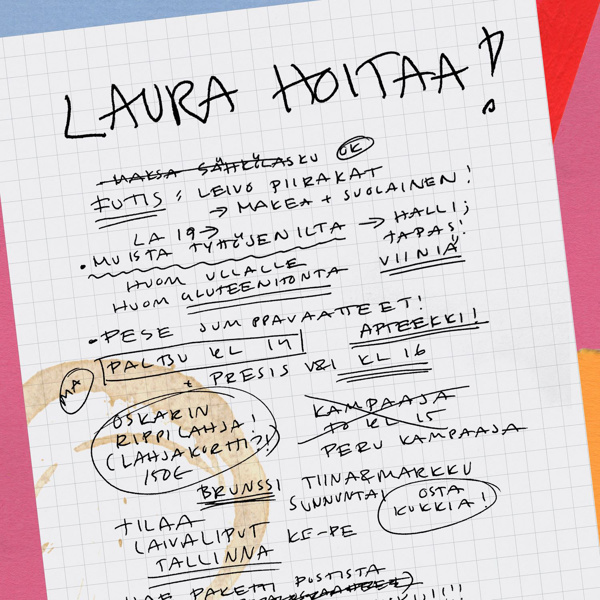 LAURA HOITAA!
MAKSA SÄHKÖLASKU OK
FUTIS: LEIVO PIIRAKAT
→ MAKEA + SUOLAINEN!
LA 19→
• MUISTA TYTTÖJEN ILTA → HALLI;
TAPAS!
VIINIÄ
HUOM ULLALLE
HUOM GLUTEENITONTA
• PESE JUMPPAVAATTEET!
APTEEKKI!
MA PALTSU KL 14
+ PRESIS VSI KL 16
OSKARIN
RIPPILAHJA!
(LAHJAKORTTI?!)
150€
KAMPAAJA
TO KL 15
PERU KAMPAAJA
BRUNSSI TIINA&MARKKU
SUNNUNTAI
OSTA
KUKKIA!
TILAA
LAIVALIPUT KE-PE
TALLINNA
HAE PAKETTI POSTISTA